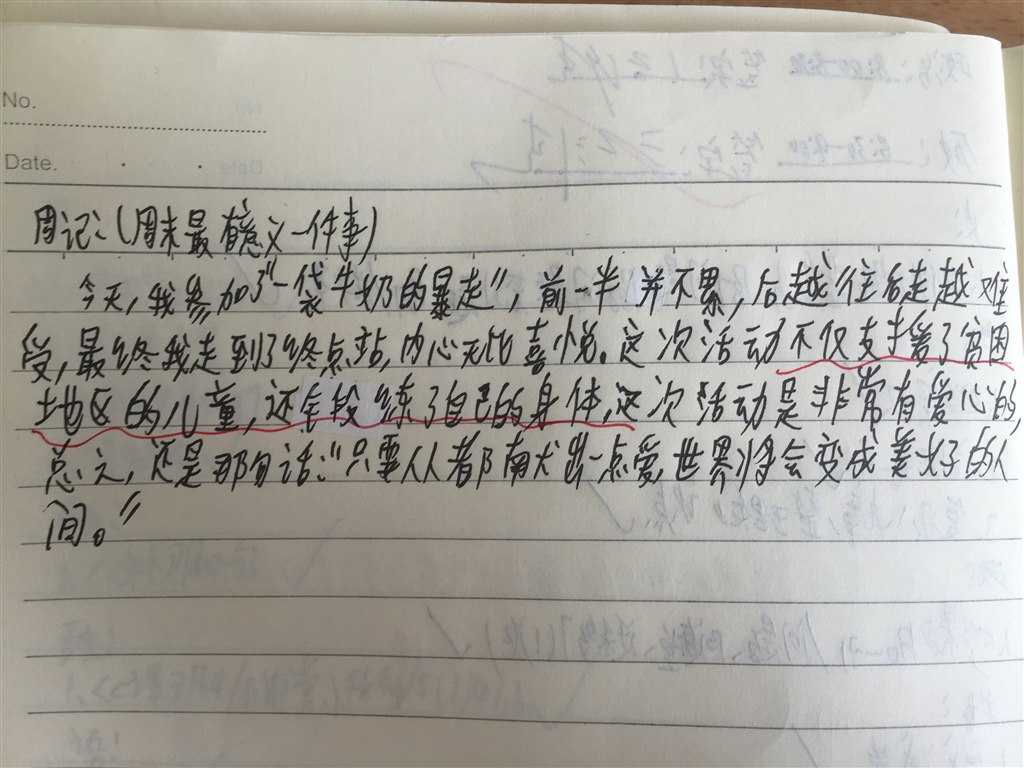 No.
Date.
周记:(周末最有意义一件事)
今天,我参加了"一袋牛奶的暴走",前一半并不累,后越往后走越难
受,最终我走到了终点站,内心无比喜悦。这次活动不仅支援了贫困
地区的儿童,还全锻练了自己的身体,这次活动是非常有爱心的,
总之,还是那句话:"只要人人都献出一点爱,世界将会变成美好的人
间。"